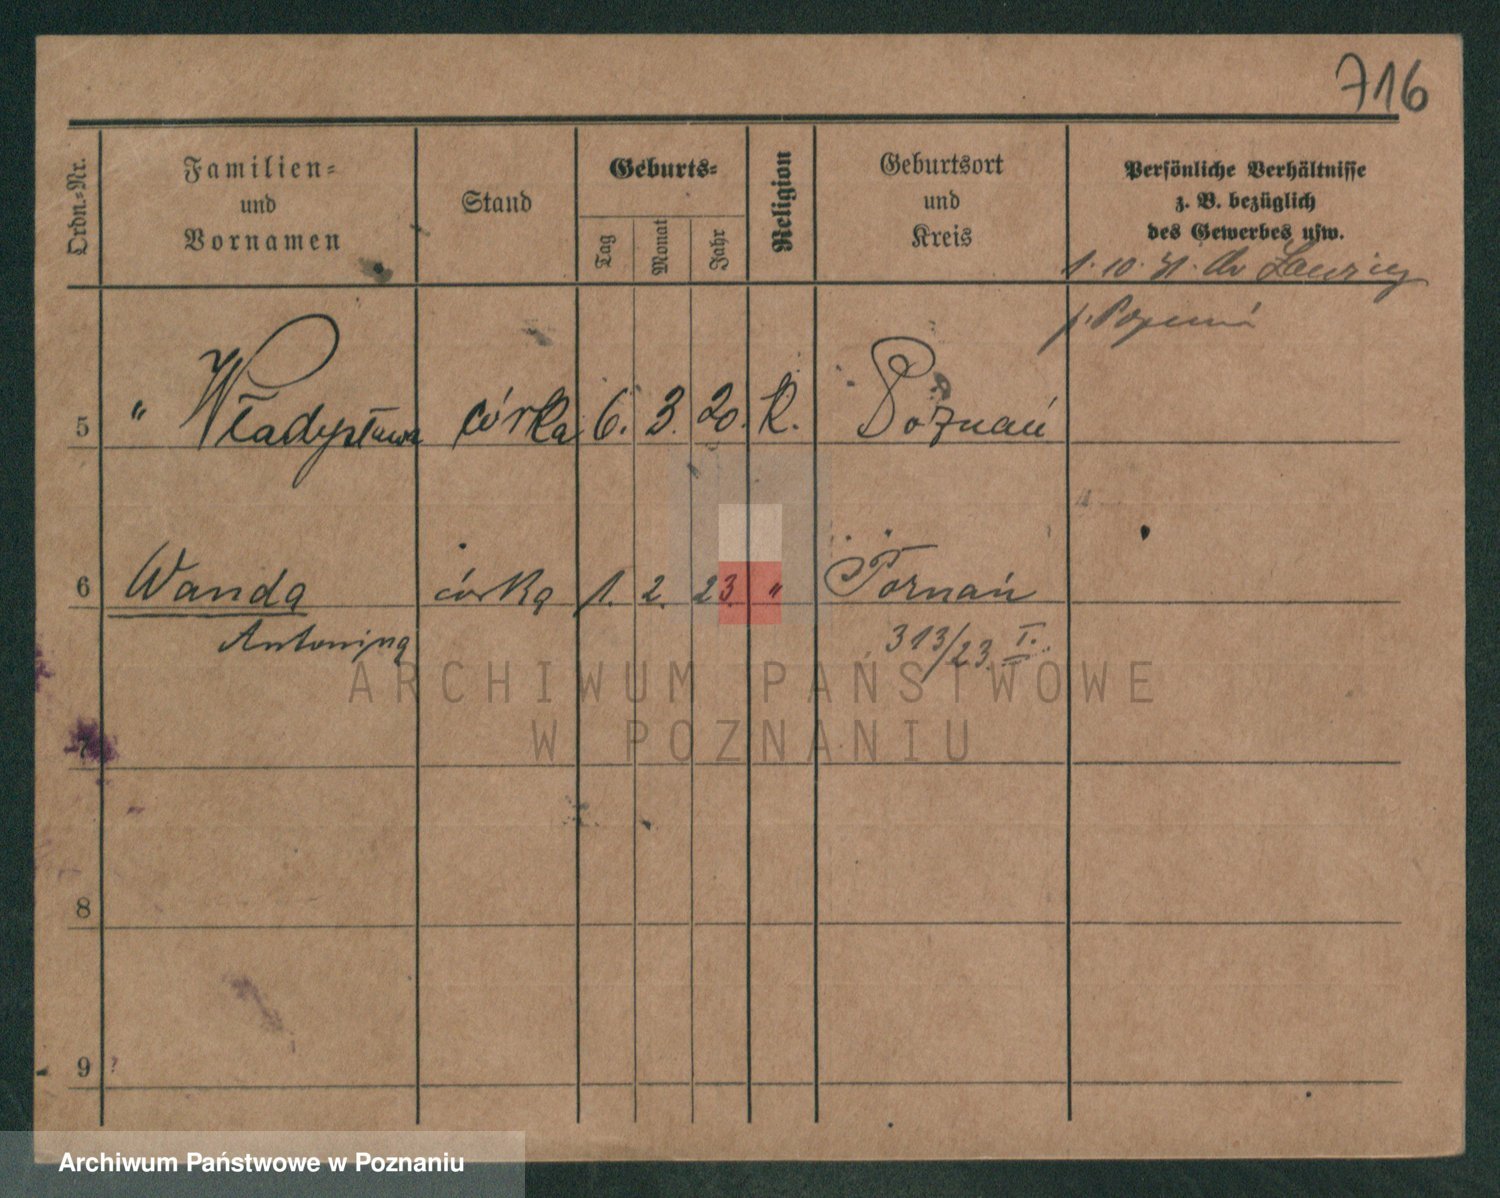 716
Ordn.-Nr.
Familien-
und
Vornamen
Stand
Geburts-
Tag
Monat
Jahr
Religion
Geburtsort
und
Kreis
Persönliche Verhältnisse
z. B. bezüglich
des Gewerbes usw.
1. 10. 31.
5 " Władysława córka 6. 3. 20. K. Poznań
6 Wanda córka 1. 2. 23. " Poznań
Antonina 313/23 I.
7
8
9
ARCHIWUM PAŃSTWOWE
W POZNANIU
Archiwum Państwowe w Poznaniu